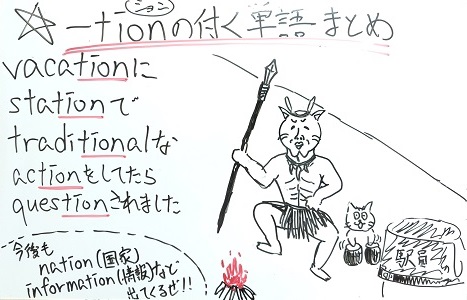 ション
☆ -tionの付く単語まとめ
vacationに
stationで
traditionalな
actionをしてたら
questionされました
今後も
nation(国家)
information(情報)など
出てくるぜ!!
駅員さん